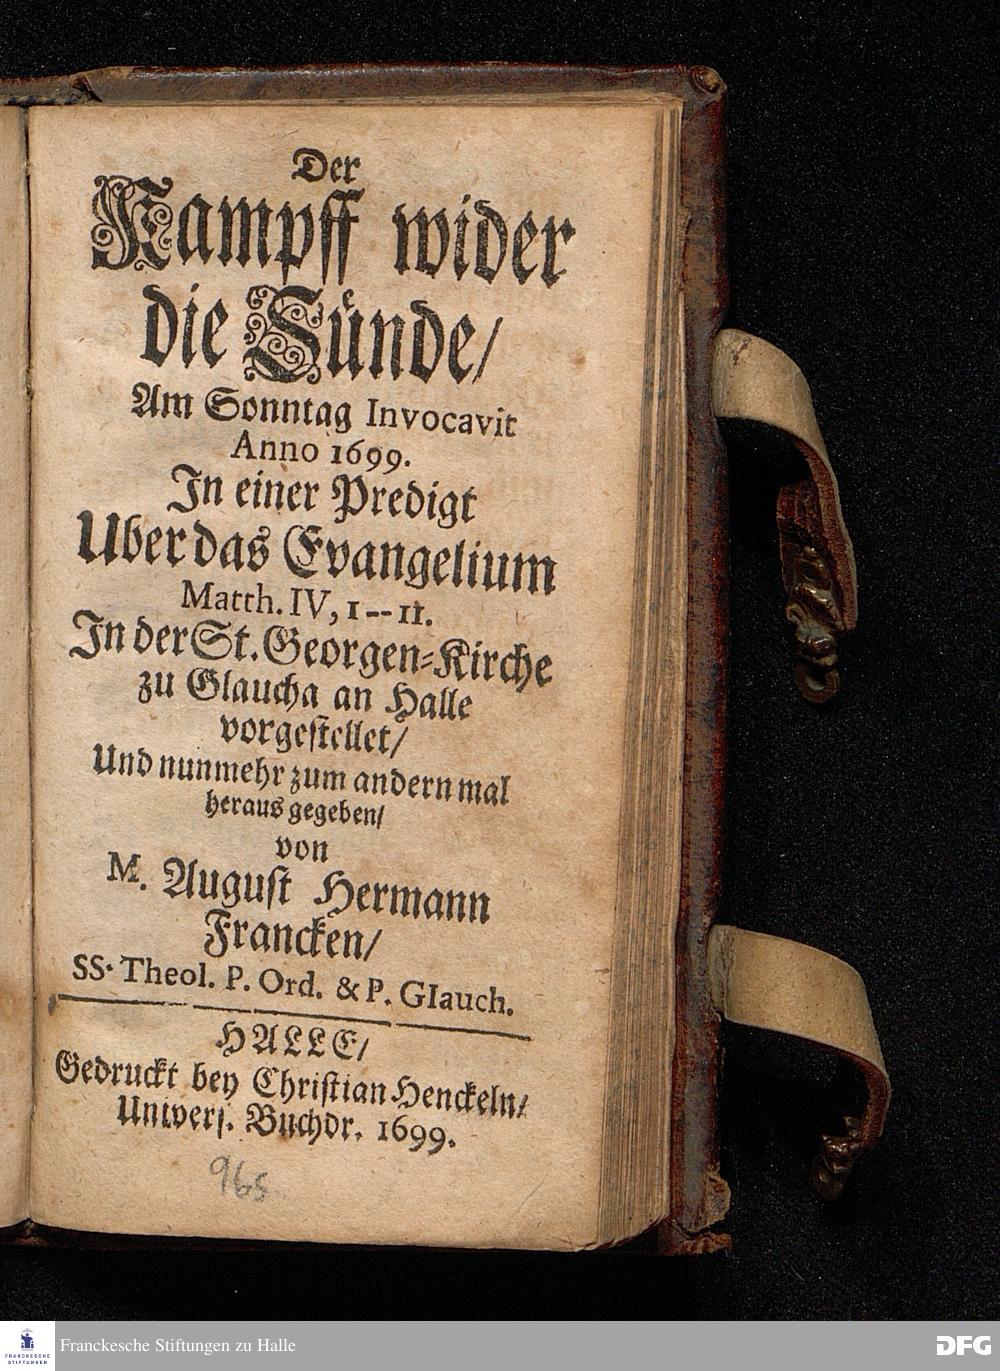 Der
Kampff wider
die Sünde/
Am Sonntag Invocavit
Anno 1699.
In einer Predigt
Uber das Evangelium
Matth. IV, 1--11.
In der St. Georgen-Kirche
zu Glaucha an Halle
vorgestellet/
Und nunmehr zum andern mal
heraus gegeben/
von
M. August Hermann
Francken/
SS. Theol. P. Ord. & P. Glauch.
HALLE/
Gedruckt bey Christian Henckeln/
Univers. Buchdr. 1699.
965
FRANCKESCHE
STIFTUNGEN
Franckesche Stiftungen zu Halle
DFG